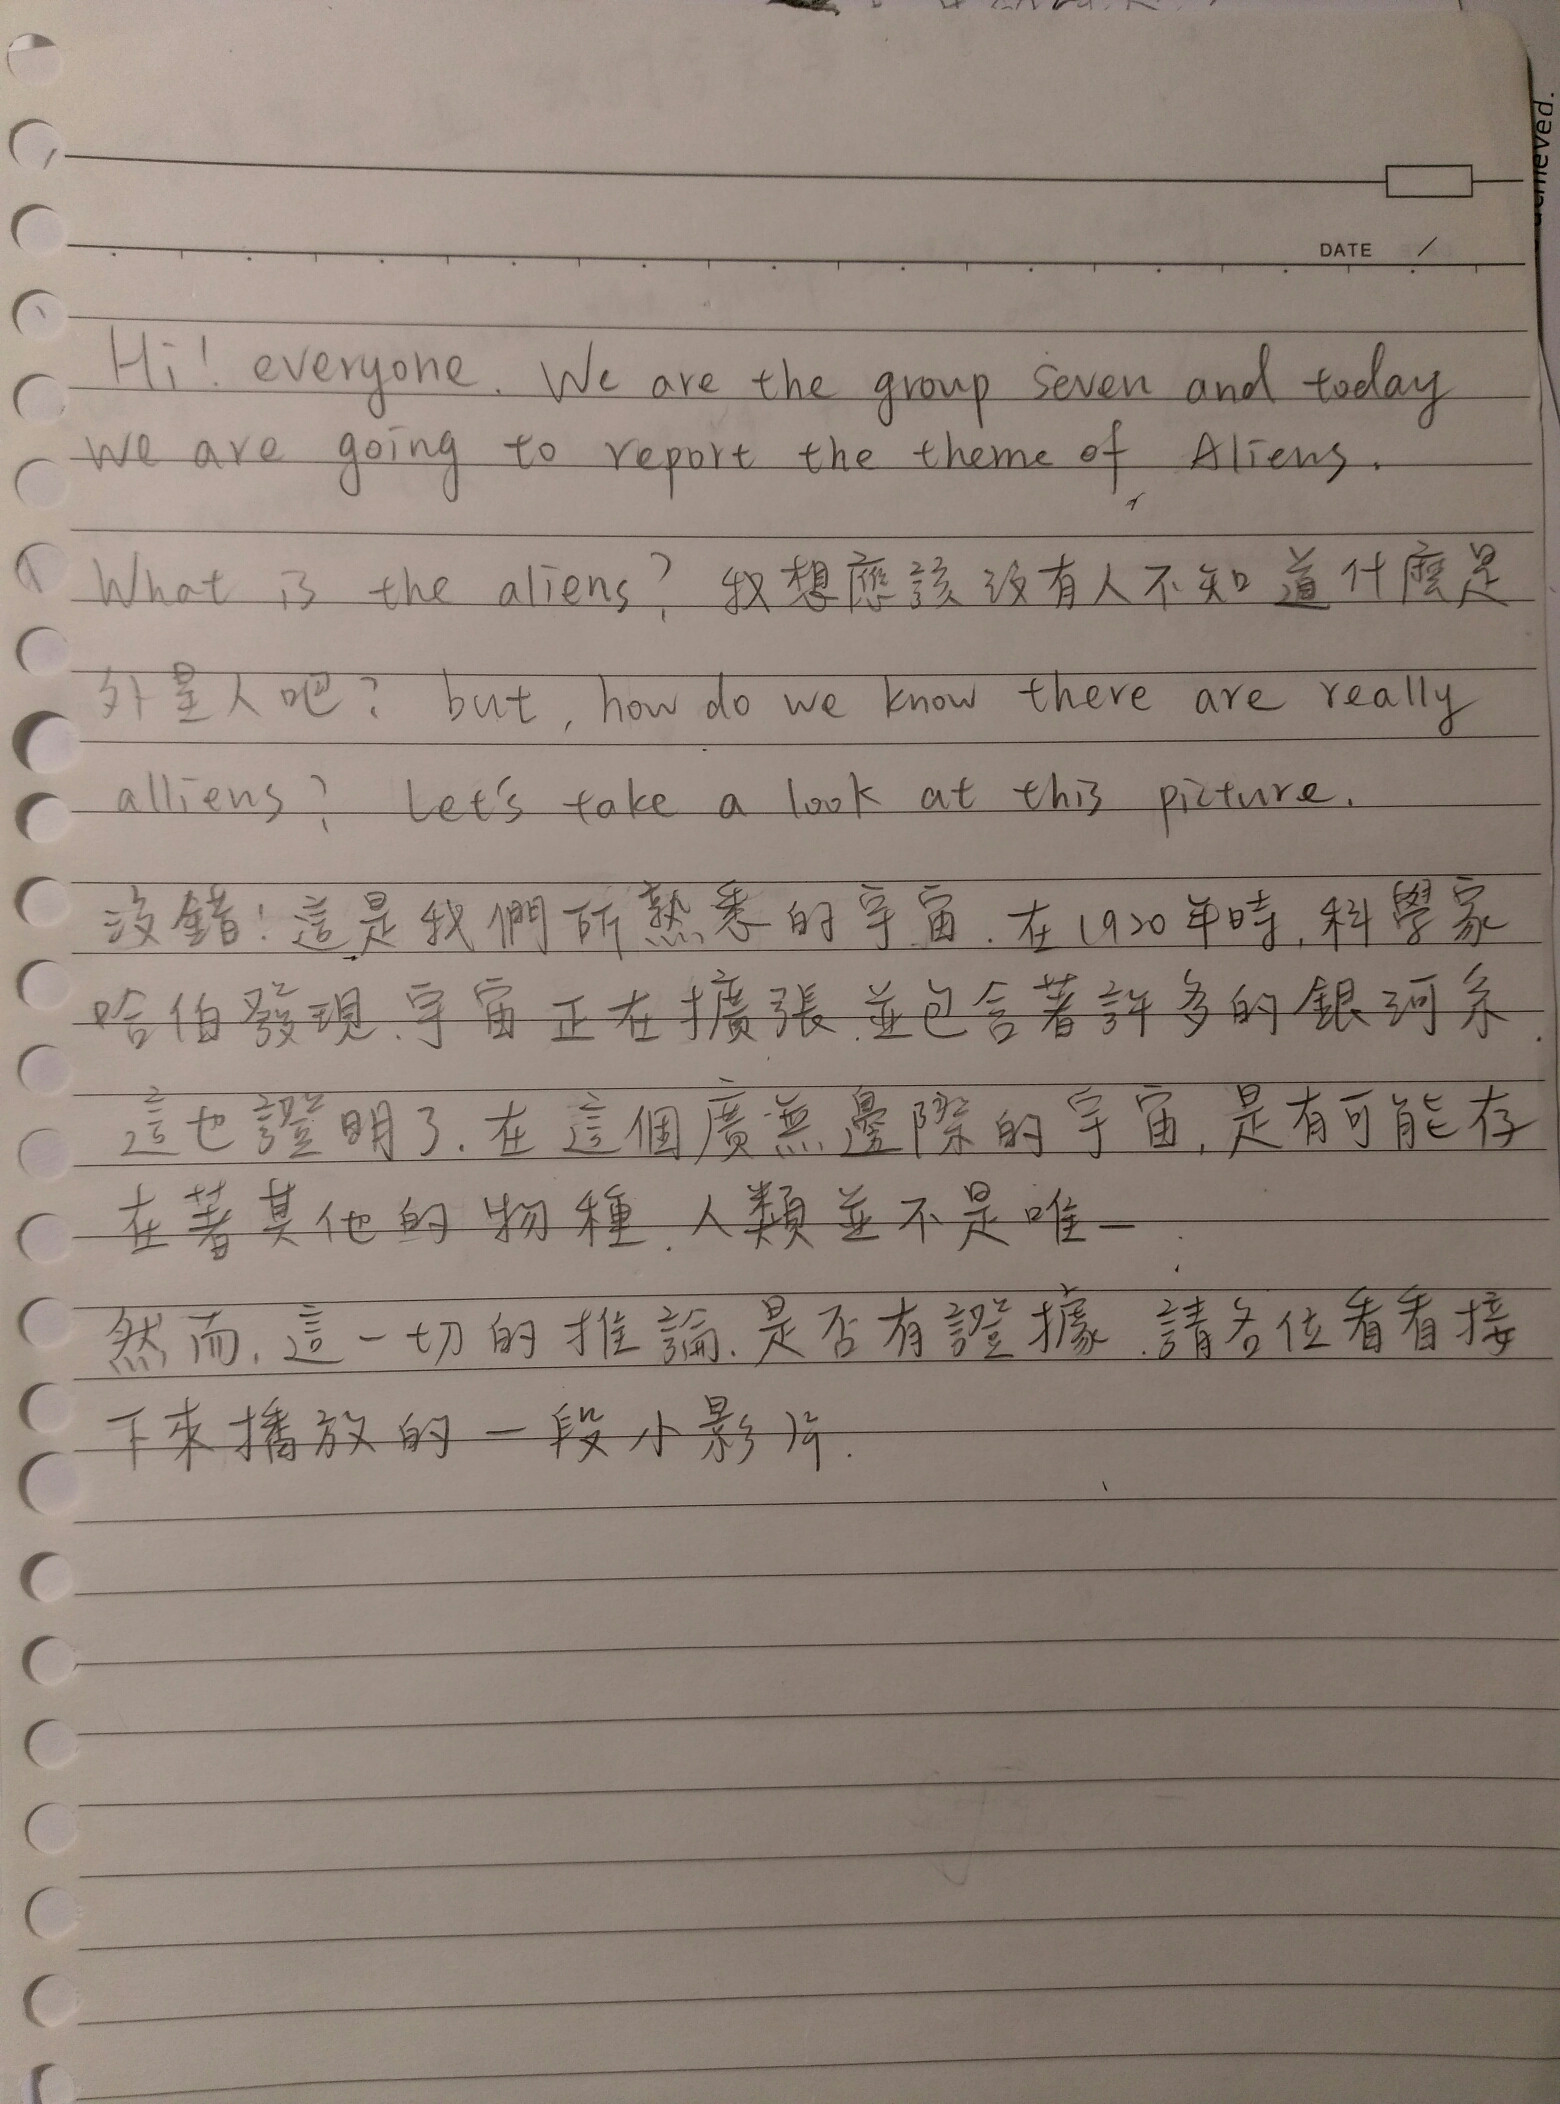 achieved.
DATE /
Hi! everyone. We are the group seven and today
we are going to report the theme of Aliens.
What is the aliens? 我想應該沒有人不知道什麼是
外星人吧? but, how do we know there are really
alliens? Let's take a look at this picture.
沒錯!這是我們所熟悉的宇宙.在1920年時,科學家
哈伯發現,宇宙正在擴張.並包含著許多的銀河系.
這也證明了.在這個廣無邊際的宇宙,是有可能存
在著其他的物種.人類並不是唯一.
然而,這一切的推論.是否有證據.請各位看看接
下來播放的一段小影片.